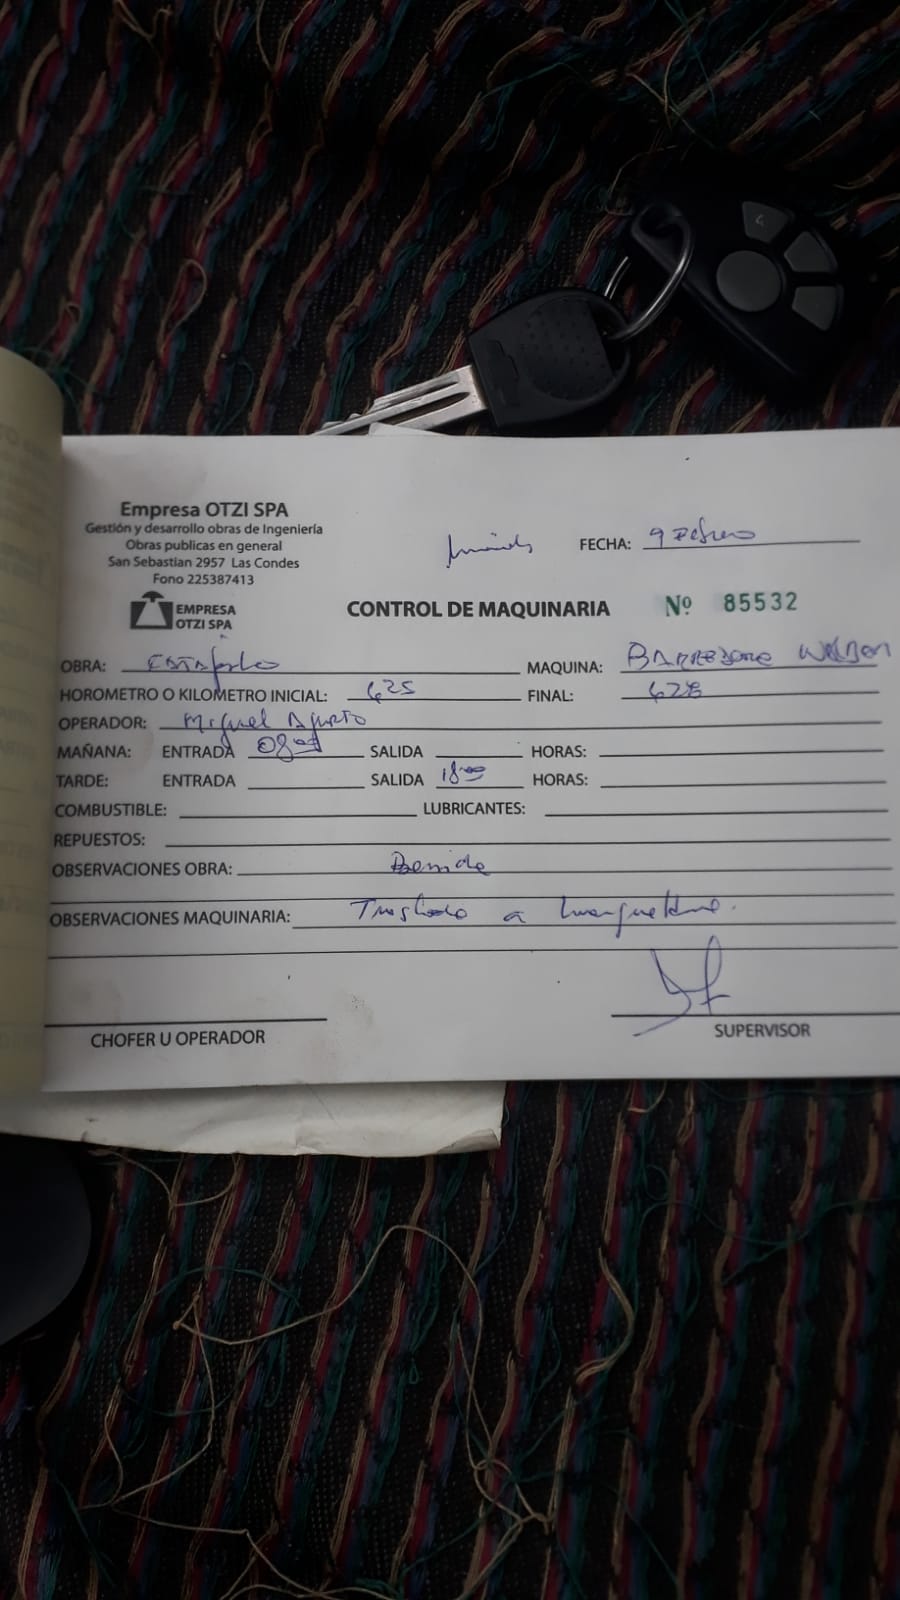 4
Empresa OTZI SPA
Gestión y desarrollo obras de Ingeniería
Obras publicas en general
San Sebastian 2957 Las Condes
Fono 225387413
EMPRESA
OTZI SPA
FECHA: 9 Febrero
CONTROL DE MAQUINARIA Nº 85532
OBRA: MAQUINA: BARREDORA
HOROMETRO O KILOMETRO INICIAL: 625 FINAL: 628
OPERADOR: Miguel Agurto
MAÑANA: ENTRADA 08 00 SALIDA HORAS:
TARDE: ENTRADA SALIDA 18 00 HORAS:
COMBUSTIBLE: LUBRICANTES:
REPUESTOS:
OBSERVACIONES OBRA:
OBSERVACIONES MAQUINARIA: Traslado a
CHOFER U OPERADOR SUPERVISOR